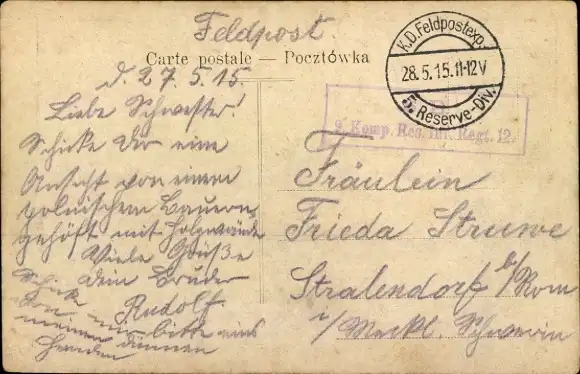 Feldpost.
Carte postale — Pocztówka
K.D. Feldpostexp.
28.5.15. 11-12V
5. Reserve-Div.
9. Komp. Res. Inf. Regt. 12.
d. 27.5.15.
Liebe Schwester!
Schicke dir eine
Ansicht von einem
polnischem Bauern-
gehöft mit Holzwände
Viele Grüße
dein Bruder
Rudolf
Schicke
mir bitte eins
von meinen dünnen
Hemden
Fräulein
Frieda Struwe
Stralendorf b/ Rom
i/ Meckl. Schwerin